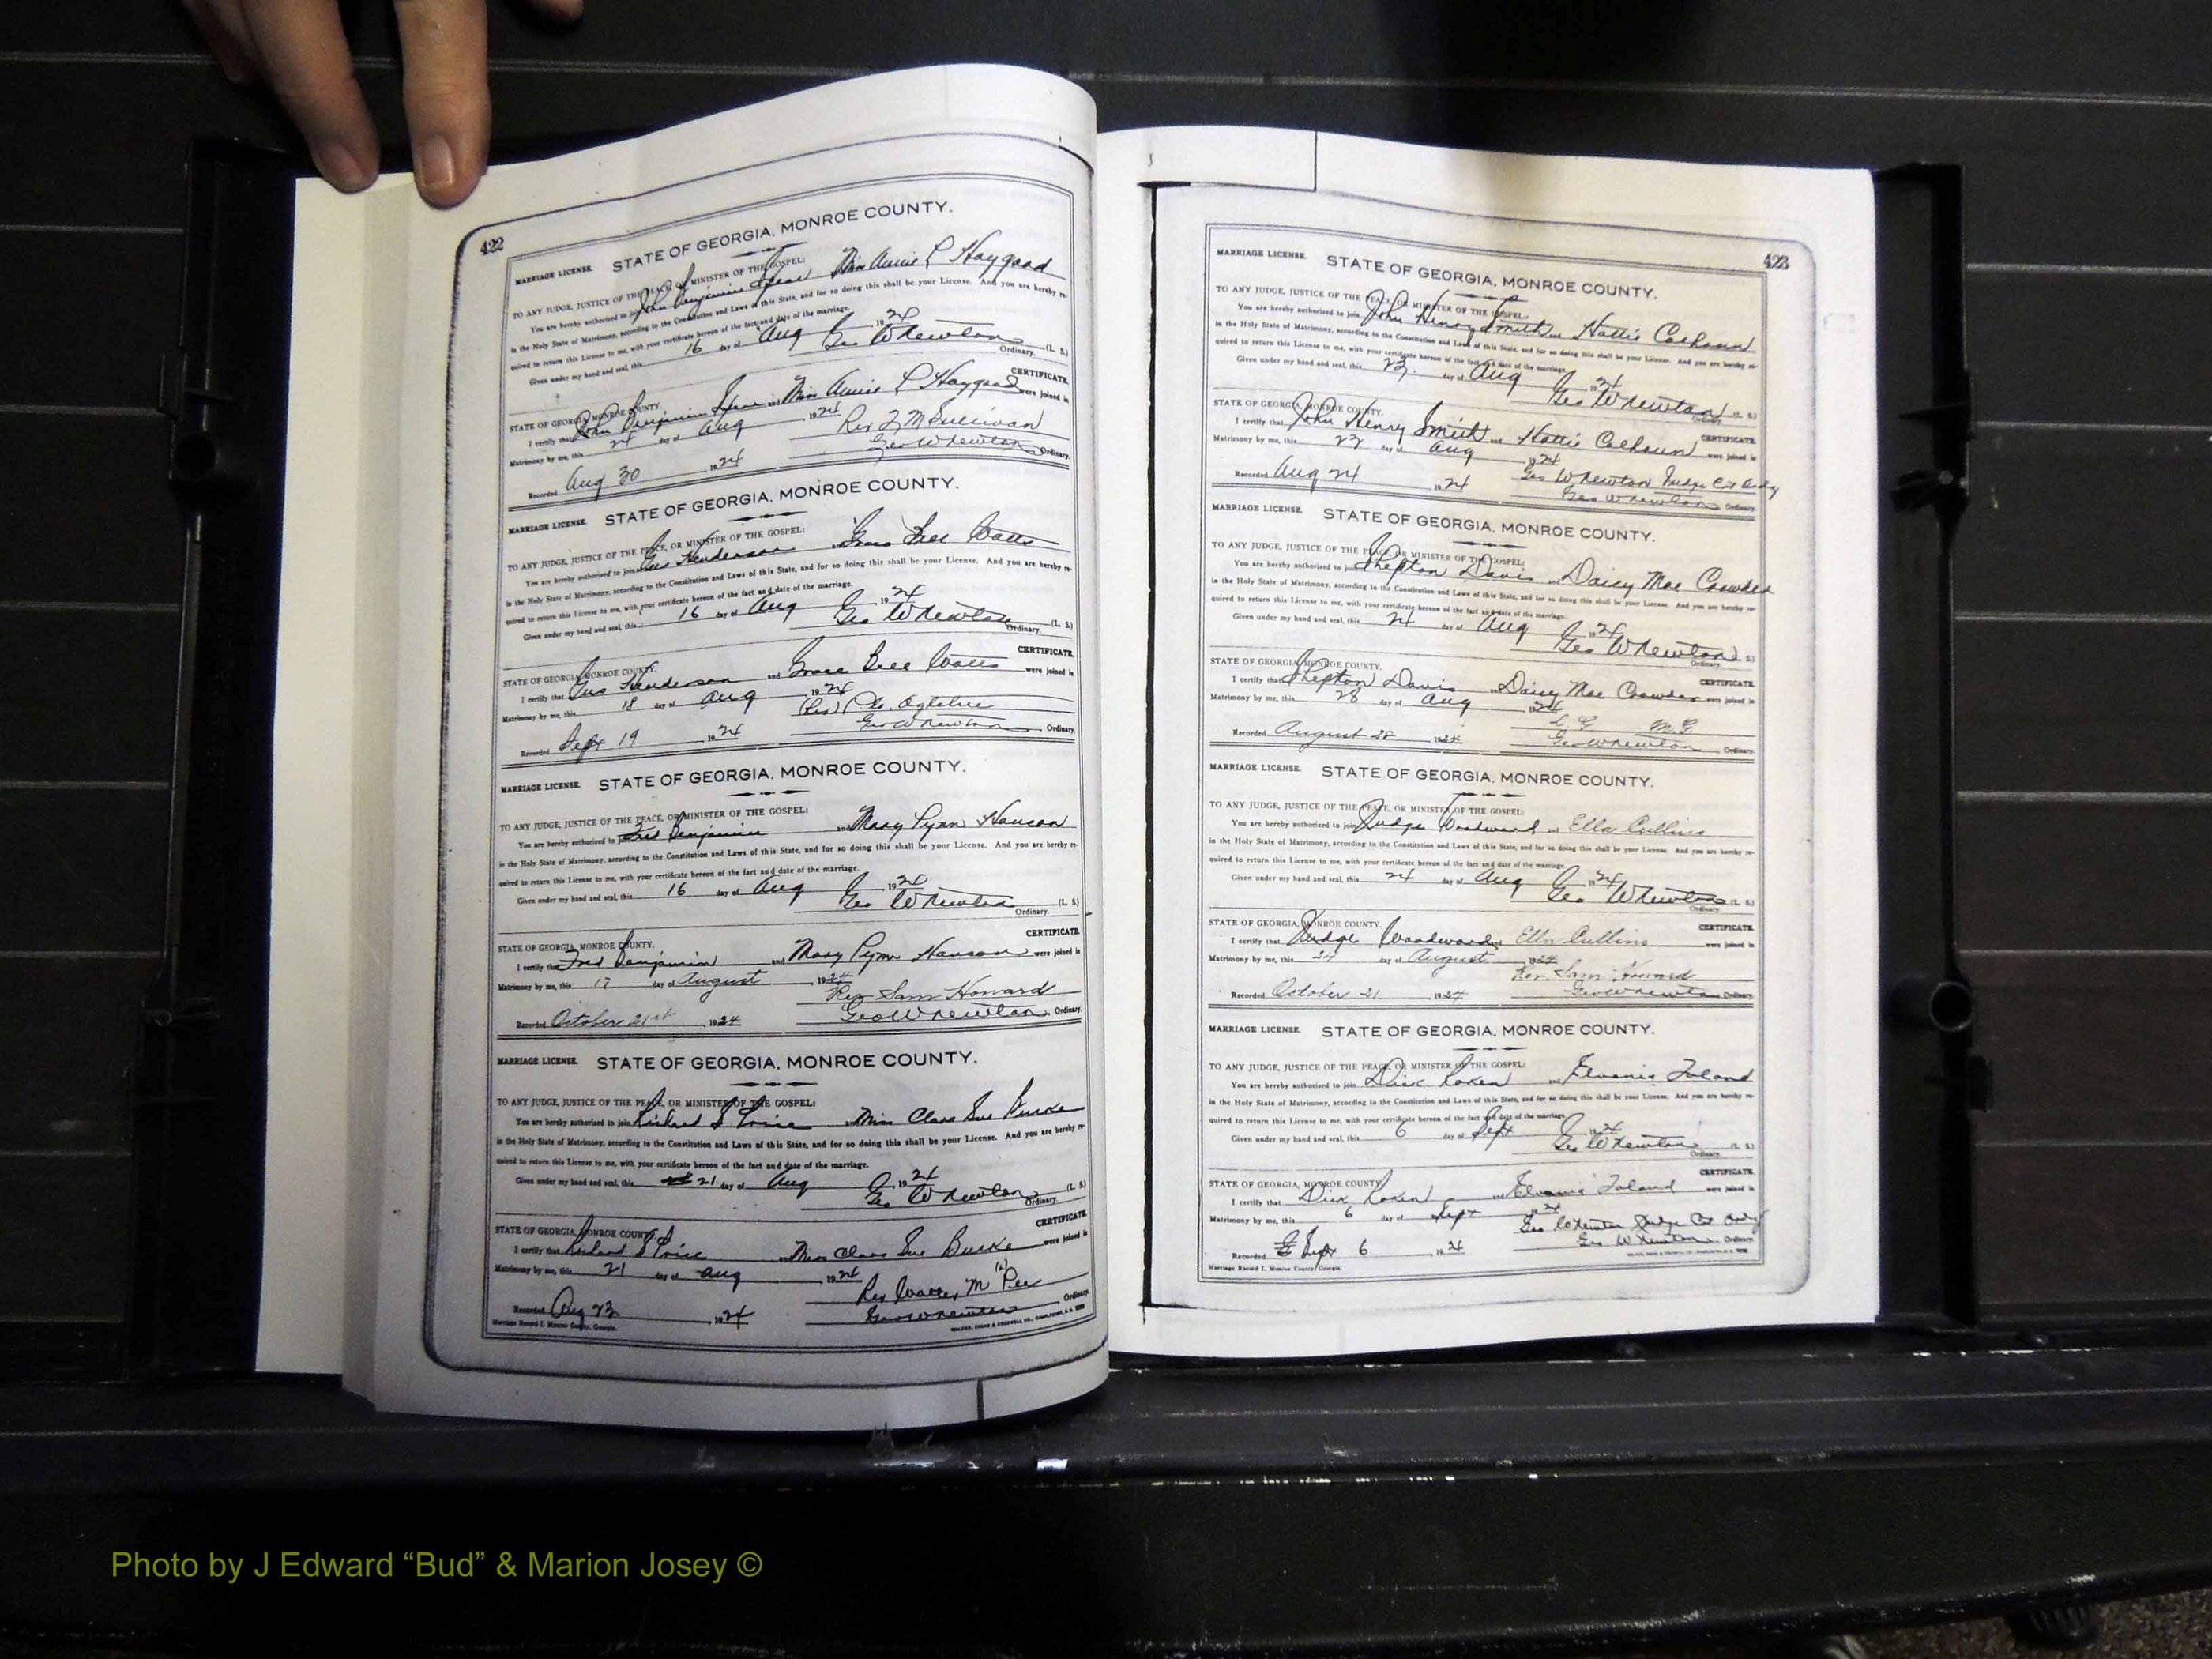 422
MARRIAGE LICENSE. STATE OF GEORGIA, MONROE COUNTY.
TO ANY JUDGE, JUSTICE OF THE PEACE, OR MINISTER OF THE GOSPEL:
You are hereby authorized to join John Benjamin Spear Miss Annie L Haygood
in the Holy State of Matrimony, according to the Constitution and Laws of this State, and for so doing this shall be your License. And you are hereby re-
quired to return this License to me, with your certificate hereon of the fact and date of the marriage.
Given under my hand and seal, this 16 day of Aug 1924
Geo W Newton (L. S.)
Ordinary.
CERTIFICATE.
STATE OF GEORGIA, MONROE COUNTY.
I certify that John Benjamin Spear and Miss Annie L Haygood were joined in
Matrimony by me, this 24 day of Aug 1924
Rev J M Sullivan
Recorded Aug 30 1924 Geo W Newton Ordinary.
MARRIAGE LICENSE. STATE OF GEORGIA, MONROE COUNTY.
TO ANY JUDGE, JUSTICE OF THE PEACE, OR MINISTER OF THE GOSPEL:
You are hereby authorized to join Gus Henderson Grace Bell Watts
in the Holy State of Matrimony, according to the Constitution and Laws of this State, and for so doing this shall be your License. And you are hereby re-
quired to return this License to me, with your certificate hereon of the fact and date of the marriage.
Given under my hand and seal, this 16 day of Aug 1924
Geo W Newton (L. S.)
Ordinary.
CERTIFICATE.
STATE OF GEORGIA, MONROE COUNTY.
I certify that Gus Henderson and Grace Bell Watts were joined in
Matrimony by me, this 18 day of Aug 1924
(Rev) Ogletree
Recorded Sept 19 1924 Geo W Newton Ordinary.
MARRIAGE LICENSE. STATE OF GEORGIA, MONROE COUNTY.
TO ANY JUDGE, JUSTICE OF THE PEACE, OR MINISTER OF THE GOSPEL:
You are hereby authorized to join Fred Benjamin and Mary Lynn Hanson
in the Holy State of Matrimony, according to the Constitution and Laws of this State, and for so doing this shall be your License. And you are hereby re-
quired to return this License to me, with your certificate hereon of the fact and date of the marriage.
Given under my hand and seal, this 16 day of Aug 1924
Geo W Newton (L. S.)
Ordinary.
CERTIFICATE.
STATE OF GEORGIA, MONROE COUNTY.
I certify that Fred Benjamin and Mary Lynn Hanson were joined in
Matrimony by me, this 17 day of August 1924
Rev Sam Howard
Recorded October 21st 1924 Geo W Newton Ordinary.
MARRIAGE LICENSE. STATE OF GEORGIA, MONROE COUNTY.
TO ANY JUDGE, JUSTICE OF THE PEACE, OR MINISTER OF THE GOSPEL:
You are hereby authorized to join Richard S Price and Miss Clara Sue Burke
in the Holy State of Matrimony, according to the Constitution and Laws of this State, and for so doing this shall be your License. And you are hereby re-
quired to return this License to me, with your certificate hereon of the fact and date of the marriage.
Given under my hand and seal, this 21 day of Aug 1924
Geo W Newton (L. S.)
Ordinary.
CERTIFICATE.
STATE OF GEORGIA, MONROE COUNTY.
I certify that Richard S Price and Miss Clara Sue Burke were joined in
Matrimony by me, this 21 day of Aug 1924
Rev Walter M Lee
Recorded Aug 23 1924 Geo W Newton Ordinary.
Marriage Record I. Monroe County, Georgia.
423
MARRIAGE LICENSE. STATE OF GEORGIA, MONROE COUNTY.
TO ANY JUDGE, JUSTICE OF THE PEACE, OR MINISTER OF THE GOSPEL:
You are hereby authorized to join John Henry Smith and Hattie Calhoun
in the Holy State of Matrimony, according to the Constitution and Laws of this State, and for so doing this shall be your License. And you are hereby re-
quired to return this License to me, with your certificate hereon of the fact and date of the marriage.
Given under my hand and seal, this 23 day of Aug 1924
Geo W Newton (L. S.)
Ordinary.
STATE OF GEORGIA, MONROE COUNTY.
CERTIFICATE.
I certify that John Henry Smith and Hattie Calhoun were joined in
Matrimony by me, this 23 day of Aug 1924
Geo W Newton Judge Ct Ordy
Recorded Aug 24 1924 Geo W Newton Ordinary.
MARRIAGE LICENSE. STATE OF GEORGIA, MONROE COUNTY.
TO ANY JUDGE, JUSTICE OF THE PEACE, OR MINISTER OF THE GOSPEL:
You are hereby authorized to join Shepton Davis and Daisy Mae Crowder
in the Holy State of Matrimony, according to the Constitution and Laws of this State, and for so doing this shall be your License. And you are hereby re-
quired to return this License to me, with your certificate hereon of the fact and date of the marriage.
Given under my hand and seal, this 24 day of Aug 1924
Geo W Newton (L. S.)
Ordinary.
STATE OF GEORGIA, MONROE COUNTY.
CERTIFICATE.
I certify that Shepton Davis and Daisy Mae Crowder were joined in
Matrimony by me, this 28 day of Aug 1924
M.G.
Recorded August 28 1924 Geo W Newton Ordinary.
MARRIAGE LICENSE. STATE OF GEORGIA, MONROE COUNTY.
TO ANY JUDGE, JUSTICE OF THE PEACE, OR MINISTER OF THE GOSPEL:
You are hereby authorized to join Judge Woodward and Ella Cullins
in the Holy State of Matrimony, according to the Constitution and Laws of this State, and for so doing this shall be your License. And you are hereby re-
quired to return this License to me, with your certificate hereon of the fact and date of the marriage.
Given under my hand and seal, this 24 day of Aug 1924
Geo W Newton (L. S.)
Ordinary.
STATE OF GEORGIA, MONROE COUNTY.
CERTIFICATE.
I certify that Judge Woodward and Ella Cullins were joined in
Matrimony by me, this 24 day of August 1924
Rev Sam Howard
Recorded October 21 1924 Geo W Newton Ordinary.
MARRIAGE LICENSE. STATE OF GEORGIA, MONROE COUNTY.
TO ANY JUDGE, JUSTICE OF THE PEACE, OR MINISTER OF THE GOSPEL:
You are hereby authorized to join Dick and Elvania Toland
in the Holy State of Matrimony, according to the Constitution and Laws of this State, and for so doing this shall be your License. And you are hereby re-
quired to return this License to me, with your certificate hereon of the fact and date of the marriage.
Given under my hand and seal, this 6 day of Sept 1924
Geo W Newton (L. S.)
Ordinary.
CERTIFICATE.
STATE OF GEORGIA, MONROE COUNTY.
I certify that Dick and Elvania Toland were joined in
Matrimony by me, this 6 day of Sept 1924
Geo W Newton Judge Ct Ordy
Recorded Sept 6 1924 Geo W Newton Ordinary.
Marriage Record I. Monroe County, Georgia.
Photo by J Edward “Bud” & Marion Josey ©